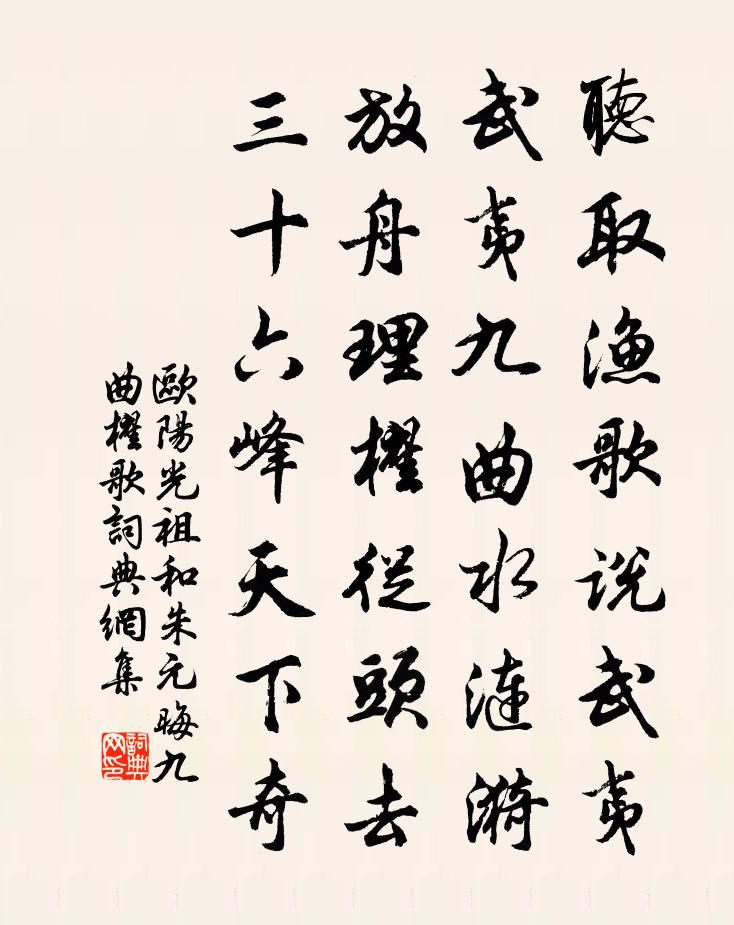 聽取漁歌說武夷
武夷九曲水漣漪
放舟理櫂從頭去
三十六峰天下奇
歐陽光祖和朱元晦九
曲櫂歌詞典網集
詞典
网印